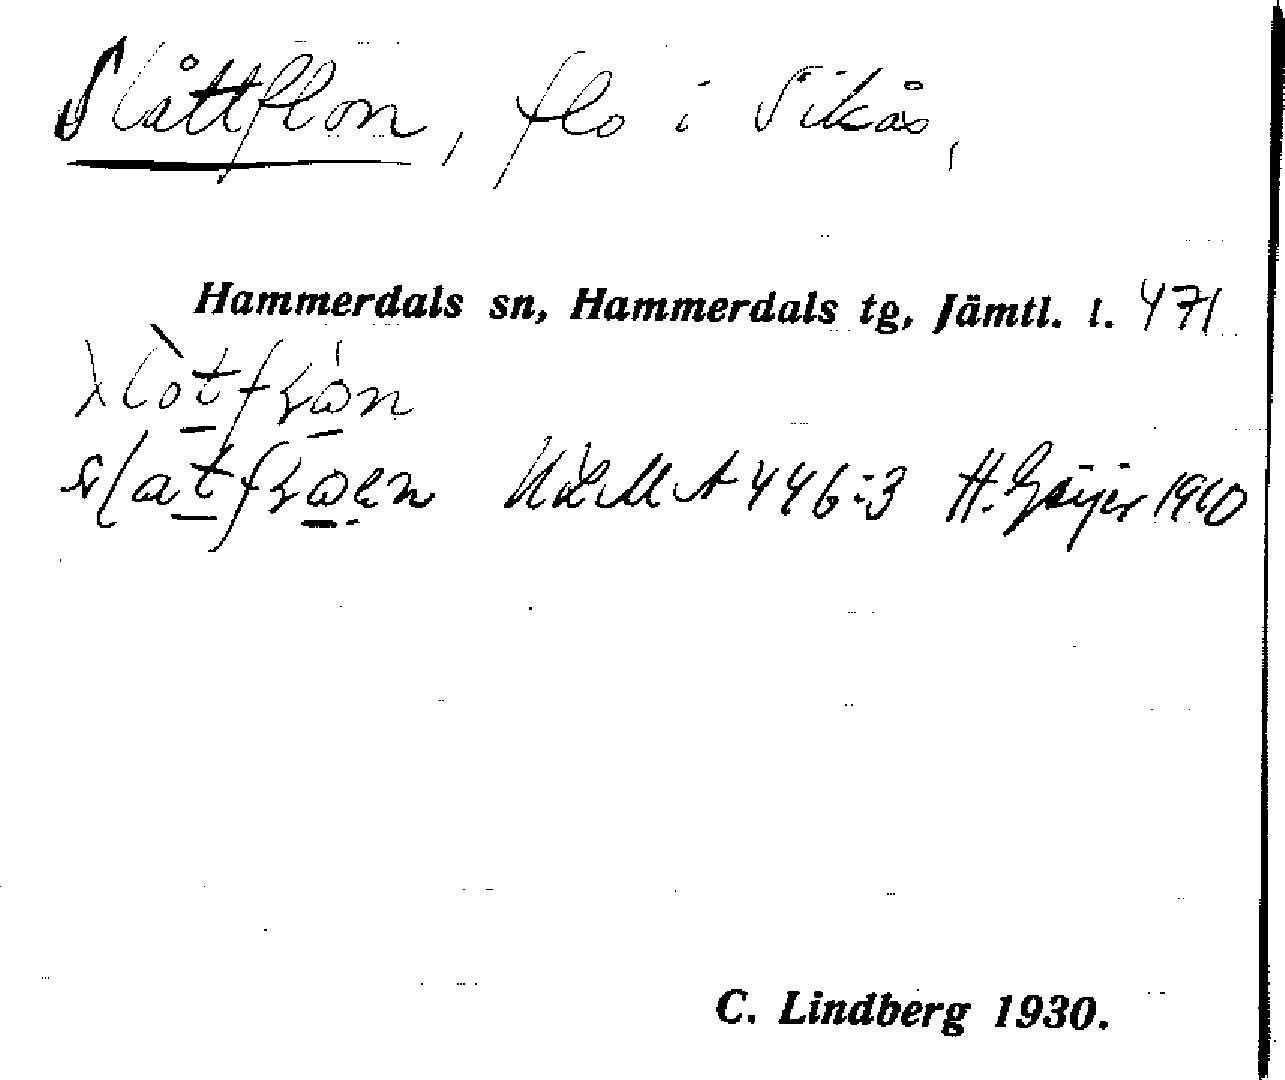 Slåttflon, flo i Sikås,
Hammerdals sn, Hammerdals tg, Jämtl. l. 471
A 446:3 H. Geijer 1910
C. Lindberg 1930.